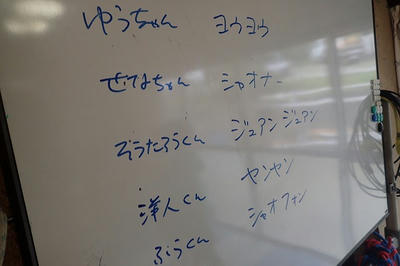 ゆうちゃん ヨウヨウ
せいなちゃん シャオナー
そうたろうくん ジュアンジュアン
洋人くん ヤンヤン
ふうくん シャオフォン